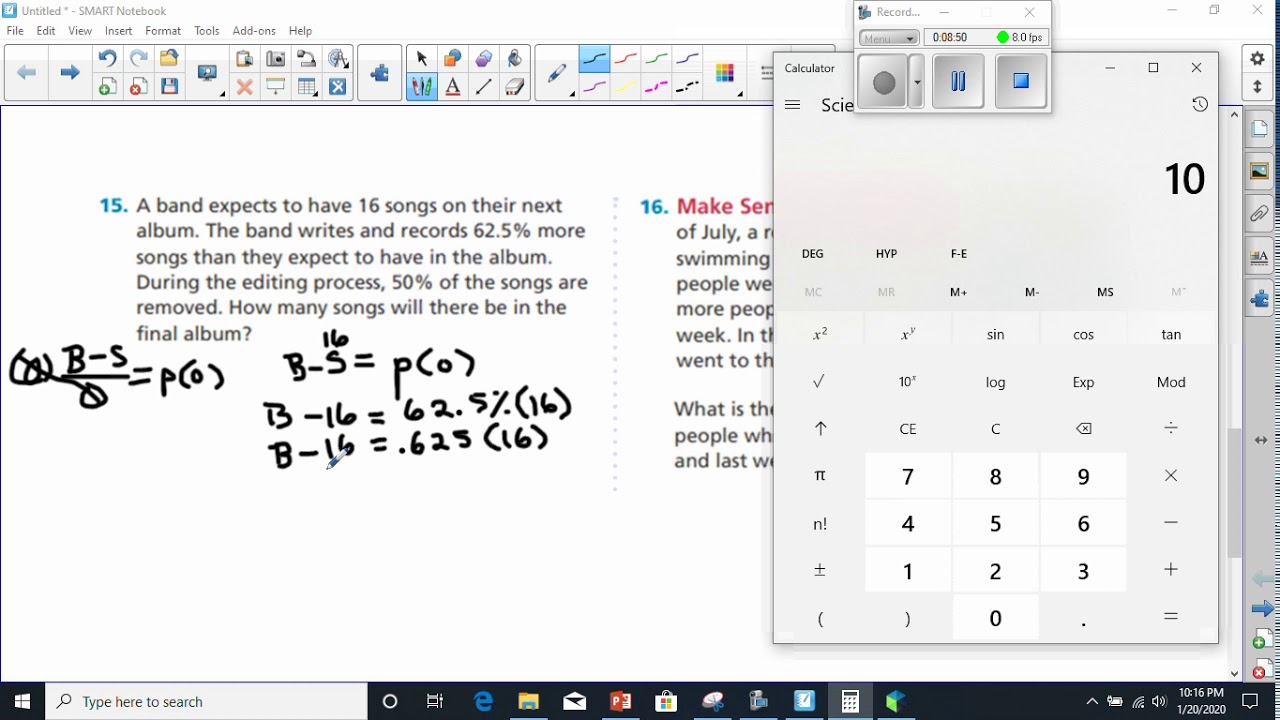 Untitled * - SMART Notebook
File Edit View Insert Format Tools Add-ons Help
Record...
Menu 0:08:50 8.0 fps
Calculator
Scie
10
DEG HYP F-E
MC MR M+ M- MS M˅
x² xʸ sin cos tan
√ 10ˣ log Exp Mod
↑ CE C ⌫ ÷
π 7 8 9 ×
n! 4 5 6 −
± 1 2 3 +
( ) 0 . =
15. A band expects to have 16 songs on their next
album. The band writes and records 62.5% more
songs than they expect to have in the album.
During the editing process, 50% of the songs are
removed. How many songs will there be in the
final album?
B-S = p(O)
16
B-S = p(O)
B-16 = 62.5%(16)
B-16 = .625(16)
16. Make Sen
of July, a r
swimming
people we
more peop
week. In th
went to th
What is the
people wh
and last we
Type here to search
10:16 PM
1/20/2020